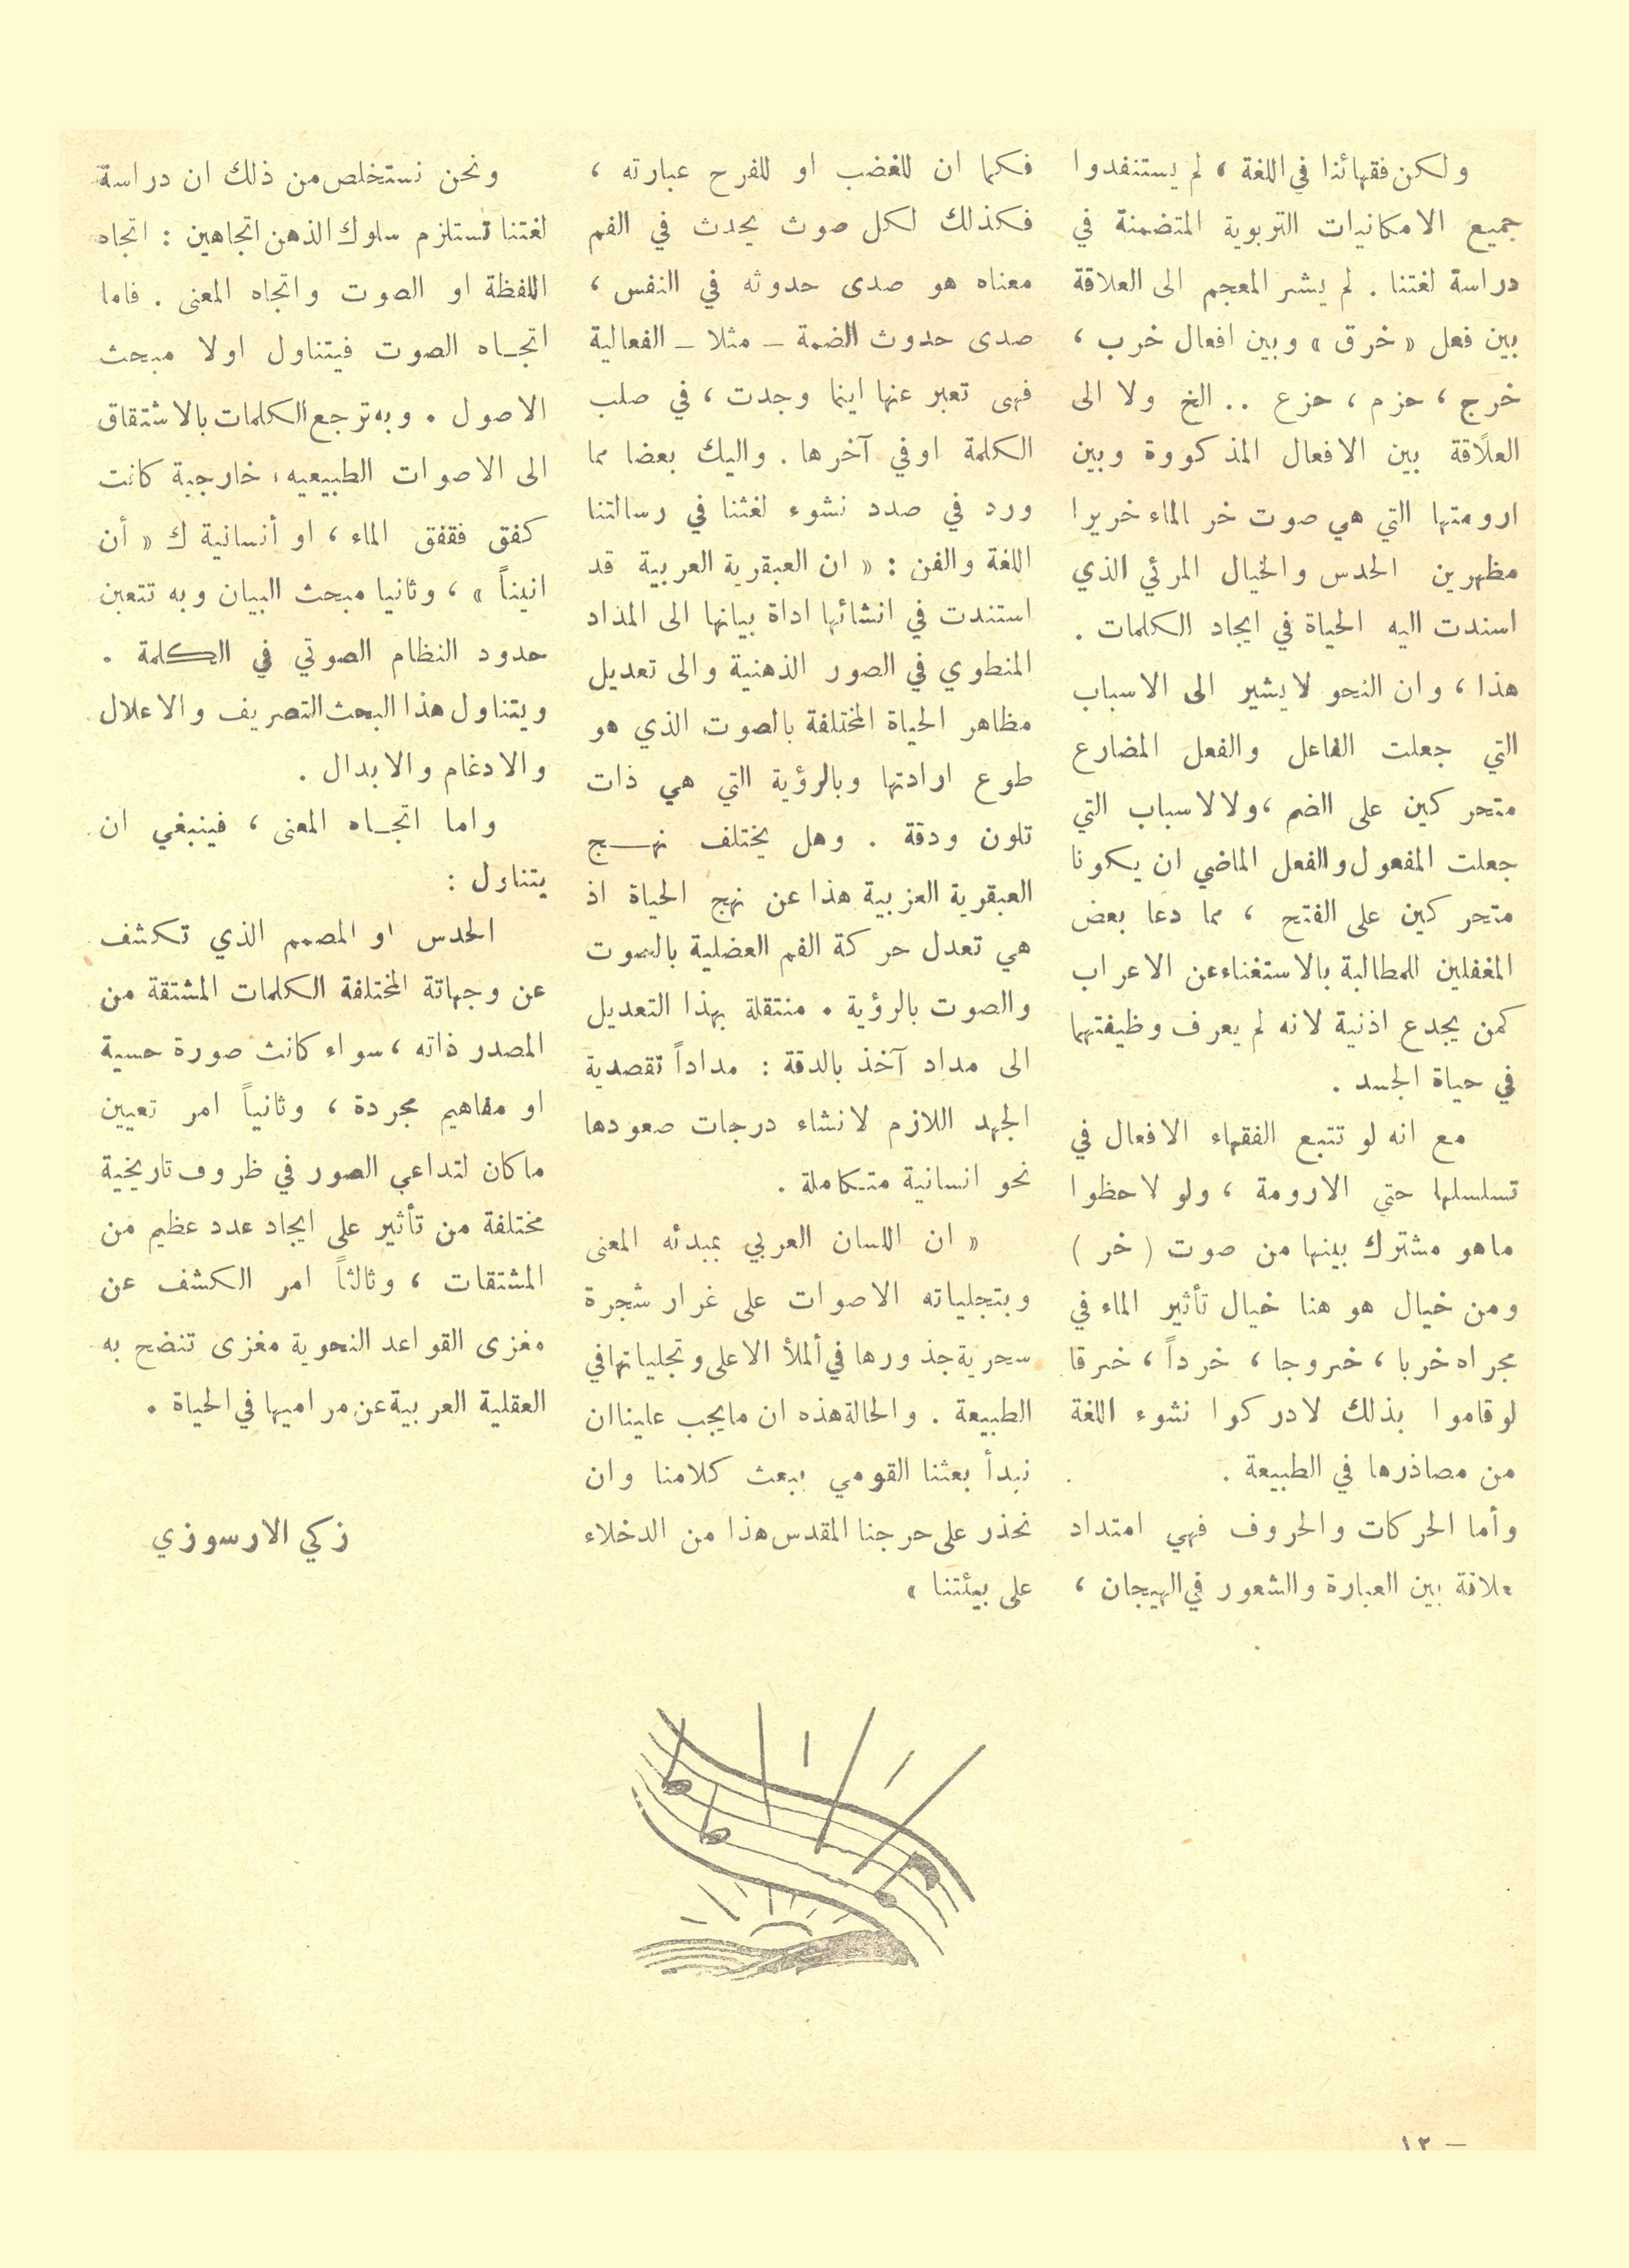 ولكن فقهائنا في اللغة ، لم يستنفدوا
جميع الامكانيات التربوية المتضمنة في
دراسة لغتنا . لم يشر المعجم الى العلاقة
بين فعل « خرق » وبين افعال خرب ،
خرج ، حزم ، حزع .. الخ ولا الى
العلاقة بين الافعال المذكورة وبين
ارومتها التي هي صوت خر الماء خريرا
مظهرين الحدس والخيال المرئي الذي
اسندت اليه الحياة في ايجاد الكلمات .
هذا ، وان النحو لا يشير الى الاسباب
التي جعلت الفاعل والفعل المضارع
متحركين على الضم ، ولا لاسباب التي
جعلت المفعول والفعل الماضي ان يكونا
متحركين على الفتح ، مما دعا بعض
المغفلين للمطالبة بالاستغناء عن الاعراب
كمن يجدع اذنية لانه لم يعرف وظيفتهما
في حياة الجسد .
مع انه لو تتبع الفقهاء الافعال في
تسلسلها حتى الارومة ، ولو لاحظوا
ما هو مشترك بينها من صوت ( خر )
ومن خيال هو هنا خيال تأثير الماء في
مجراه خربا ، خروجا ، خرداً ، خرقا
لو قاموا بذلك لادركوا نشوء اللغة
من مصاذرها في الطبيعة .
وأما الحركات والحروف فهي امتداد
علاقة بين العبارة والشعور في الهيجان ،
فكما ان للغضب او للفرح عبارته ،
فكذلك لكل صوث يحدث في الفم
معناه هو صدى حدوثه في النفس ،
صدى حدوث الضمة – مثلا – الفعالية
فهى تعبر عنها اينما وجدت ، في صلب
الكلمة او في آخرها . واليك بعضا مما
ورد في صدد نشوء لغثنا في رسالتنا
اللغة والفن : « ان العبقرية العربية قد
استندت في انشائها اداة بيانها الى المذاد
المنطوي في الصور الذهنية والى تعديل
مظاهر الحياة المختلفة بالصوت الذي هو
طوع ارادتها وبالرؤية التي هي ذات
تلون ودقة . وهل يختلف نهـــج
العبقرية العزبية هذا عن نهج الحياة اذ
هي تعدل حركة الفم العضلية بالصوت
والصوت بالرؤية . منتقلة بهذا التعديل
الى مداد آخذ بالدقة : مداداً تقصدية
الجهد اللازم لانشاء درجات صعودها
نحو انسانية متكاملة .
« ان اللسان العربي بمبدئه المعنى
وبتجلياته الاصوات على غرار شجرة
سحرية جذورها في ألملأ الاعلى وتجلياتها في
الطبيعة . والحالة هذه ان ما يجب علينا ان
نبدأ بعثنا القومي ببعث كلامنا وان
نحذر على حرجنا المقدس هذا من الدخلاء
على بيئتنا »
ونحن نستخلص من ذلك ان دراسة
لغتنا تستلزم سلوك الذهن اتجاهين : اتجاه
اللفظة او الصوت واتجاه المعنى . فاما
اتجـاه الصوت فيتناول اولا مبحث
الاصول . وبه ترجع الكلمات بالاشتقاق
الى الاصوات الطبيعيه ، خارجية كانت
كفق فقفق الماء ، او أنسانية ك « أن
انيناً » ، وثانيا مبحث البيان وبه تتعين
حدود النظام الصوتي في الكلمة .
ويتناول هذا البحث التصريف والاعلال
والادغام والابدال .
واما اتجـاه المعنى ، فينبغي ان
يتناول :
الحدس او المصمم الذي تكشف
عن وجهاتة المختلفة الكلمات المشتقة من
المصدر ذاته ، سواء كانث صورة حسية
او مفاهيم مجردة ، وثانياً امر تعيين
ما كان لتداعي الصور في ظروف تاريخية
مختلفة من تأثير على ايجاد عدد عظيم من
المشتقات ، وثالثاً امر الكشف عن
مغزى القواعد النحوية مغزى تنضح به
العقلية العربية عن مراميها في الحياة .
زكي الارسوزي
– ١٢